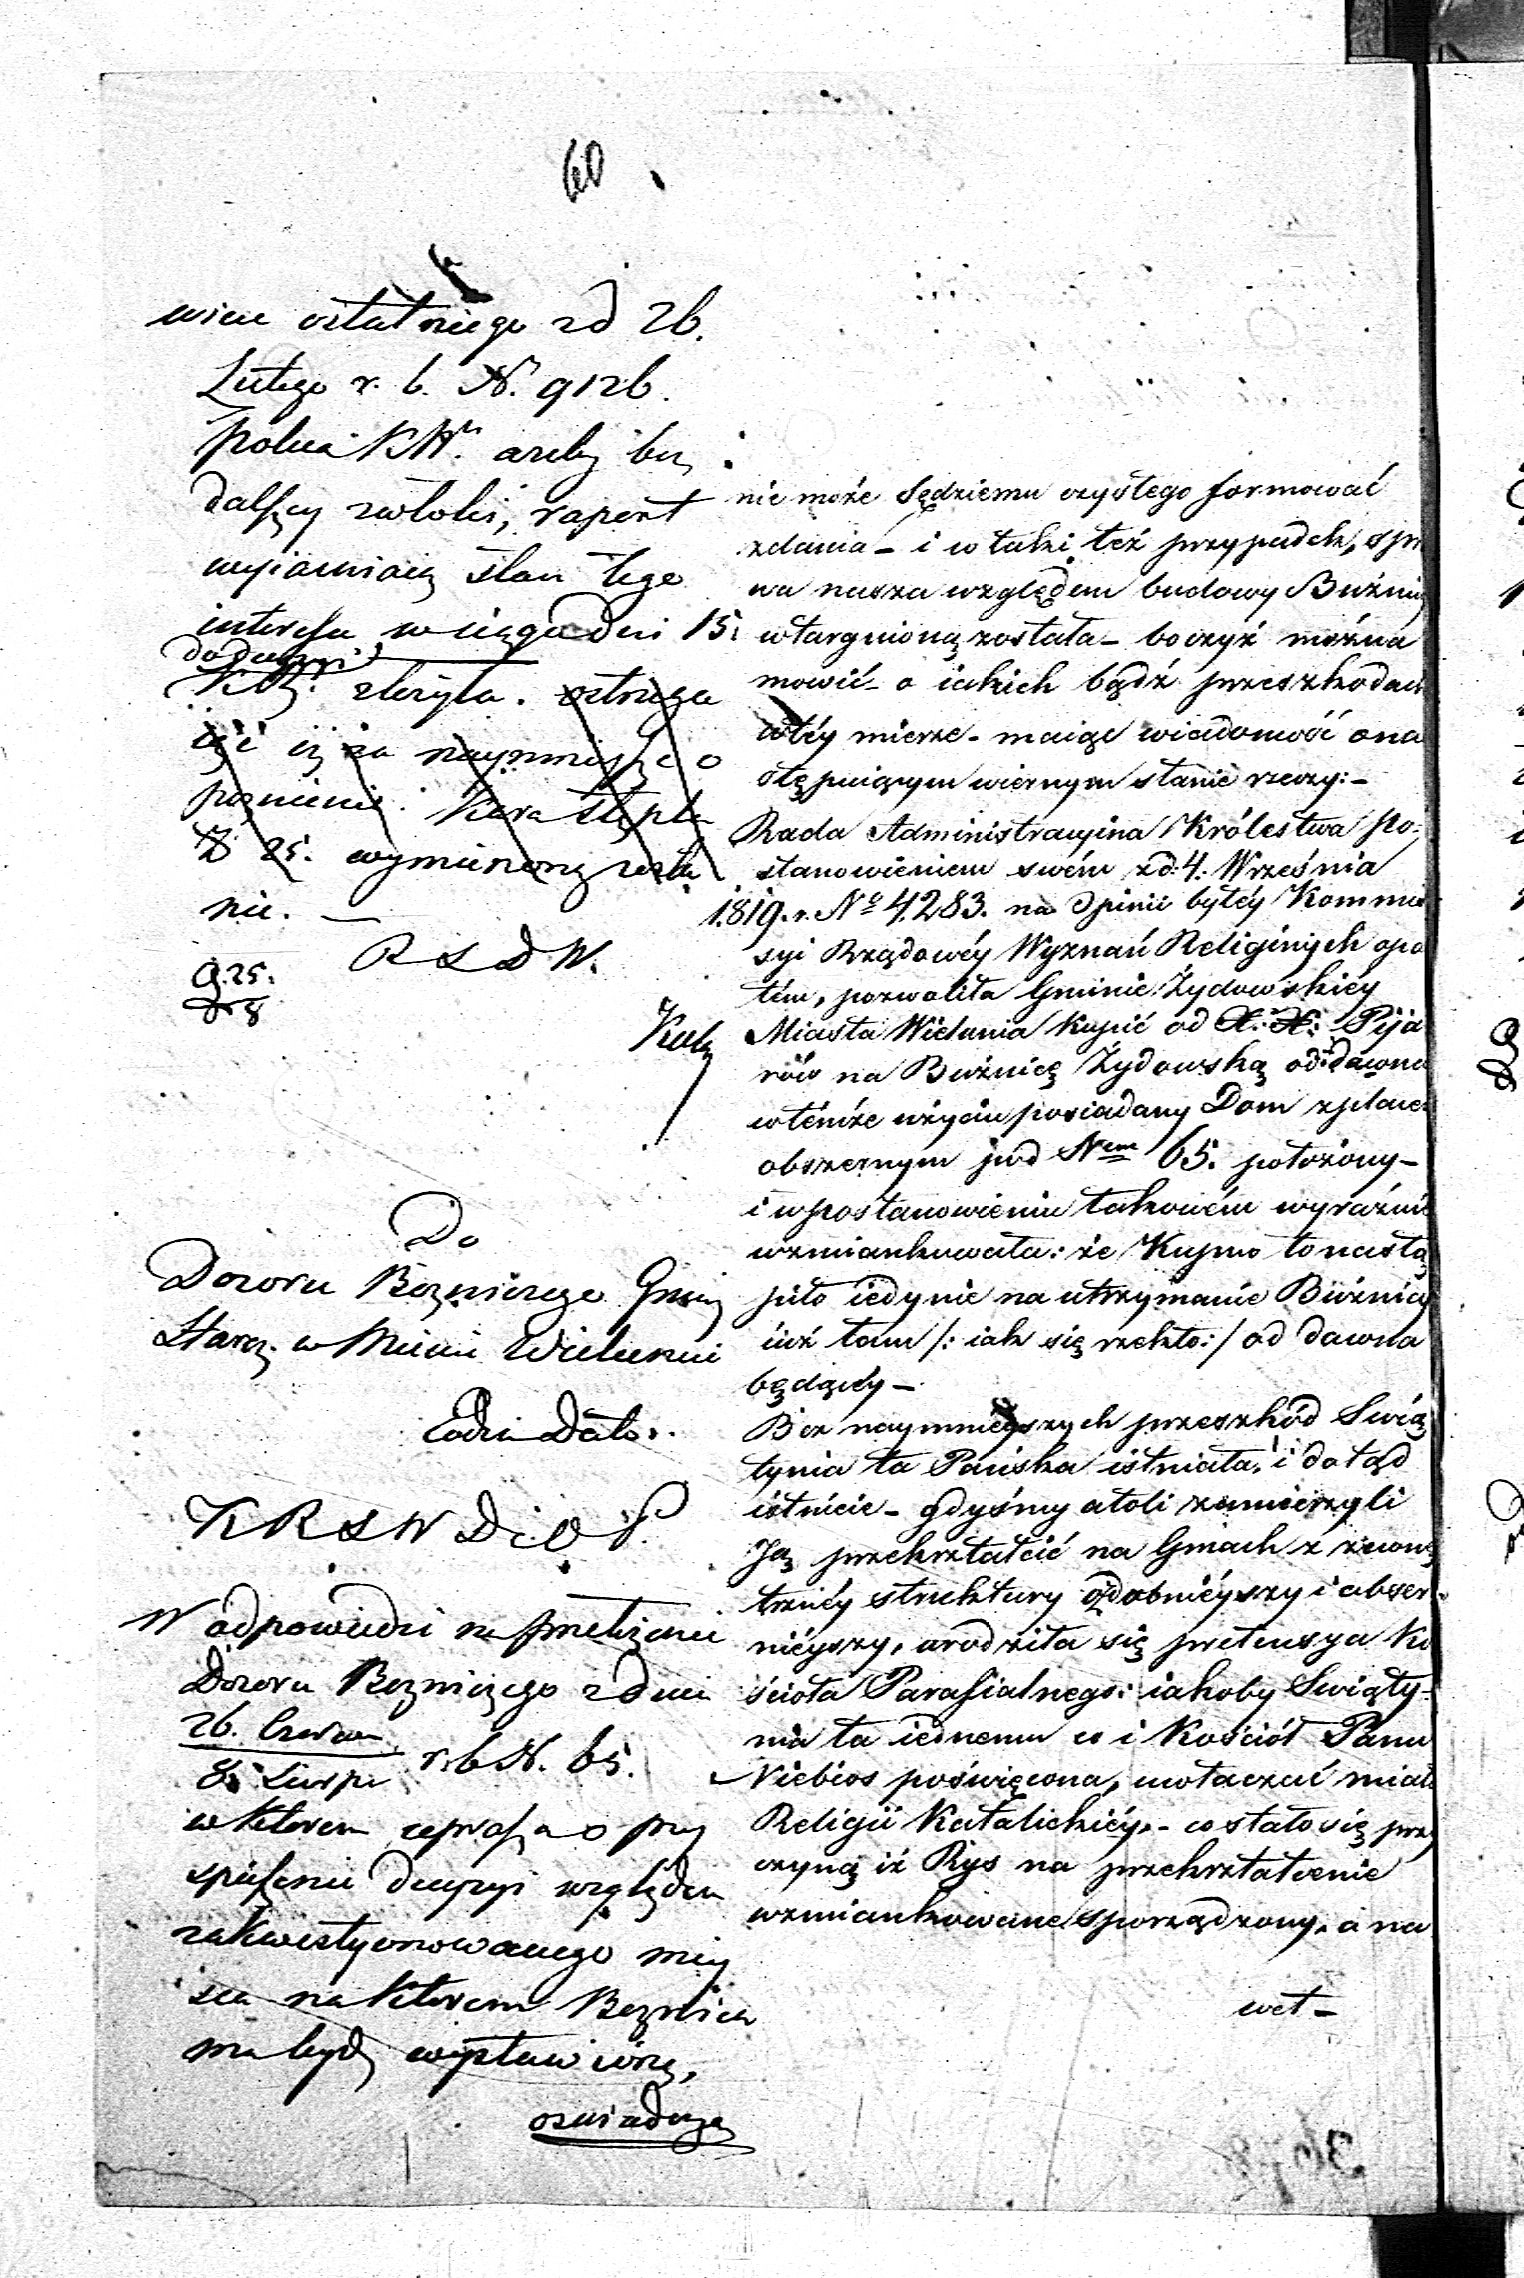 60
wieu ostatniego z d 26.
Lutego r. b. N. 9126.
poleca KW. azeby bez
dalszey zwłoki, raport
wyiaśniaią stan tego
interesu w ciągu dni 15.
do decyzyi
złożyła. ostrzega
iąc iż za naymnieysze o
poznienie. Kara stępla
Z 25. wymierzoną zosta
nie. —
R S D W.
G. 25.
8
Do
Dozoru Bożniczego Gminy
Staroz. w Mieście Wieluniu
Eodem Dato.
K R S W D i O P.
W odpowiedzi na przełożenie
Dozoru Bozniczego z dnia
26. Czerwca
8. Lipca
r. b. N. 65.
w którem uprasza o przy
spieszenie decyzyi względem
zakwestyonowanego miey
sca na którem Boznica
ma bydź wystawioną,
oswiadcza
nie może Sędziemu czystego formować
zdania – i w taki też przypadek, spra
wa nasza względem budowy Bużnicy
wtargnioną została – bo czyż można
mowić – o iakich bądź przeszkodach
w téy mierze – maiąc wiadomość o na
stępuiącym wiernym stanie rzeczy: –
Rada Administracyina Królestwa po-
stanowieniem swém z d: 4. Września
1819. r. Nº 4,283. na Opinii byłéy Kommis
syi Rządowéy Wyznań Religinych opa
tém, pozwoliła Gminie Żydowskiéy
Miasta Wielunia Kupić od X: X: Pija
rów na Bużnicę Żydowską od dawna
w témże użyciu posiadany Dom z place
obszernym pod Nem 65. położony –
i w postanowieniu takowém wyraźnie
wzmiankowała: że Kupno to nastą
piło iedynie na utrzymanie Bużnicy
iuż tam /: iak się rzekło :/ od dawna
będącéy –
Bez naymnieyszych przeszkód Swią
tynia ta Pańska istniała, i dotąd
istnieie – gdyśmy atoli zamierzyli
Ją przekształcić na Gmach z zewnę
trznéy struktury ozdobniéyszy i obszer-
niéyszy, urodziła się pretensya Ko
ścioła Parafialnego: iakoby Swiąty-
nia ta iednemu co i Kościół Panu
Niebios poświęcona, uwłaczać miała
Religii Katolickiéy, – co stało się przy
czyną iż Rys na przekształcenie
wzmiankowane sporządzony, a na
wet –